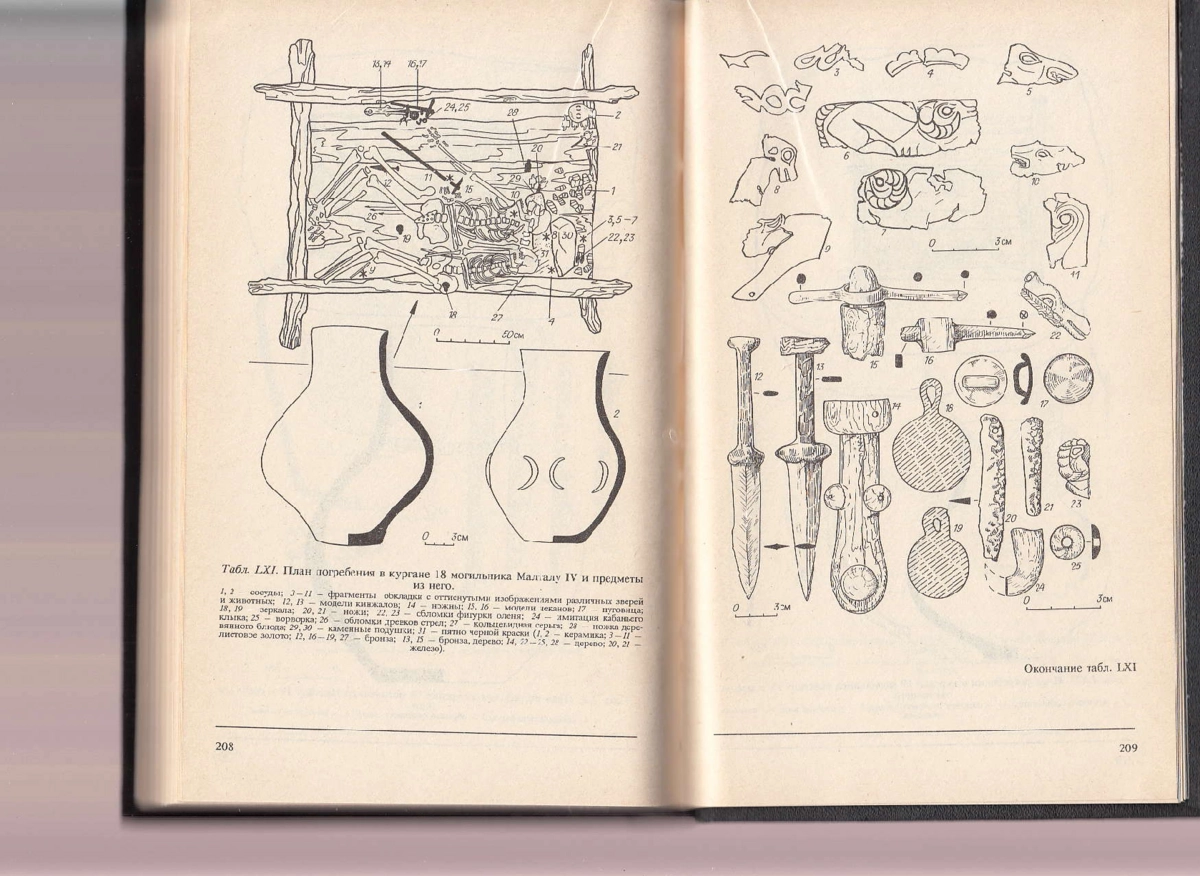 18,14
16,17
24,25
28
2
20
21
11
15
29
12
10
1
26
19
3,5-7
8
30
22,23
31
9
18
27
4
0 50см
2
0 3см
Табл. LXI. План погребения в кургане 18 могильника Малталу IV и предметы
из него.
1, 2 — сосуды; 3—11 — фрагменты обкладки с оттиснутыми изображениями различных зверей
и животных; 12, 13 — модели кинжалов; 14 — ножны; 15, 16 — модели чеканов; 17 — пуговица;
18, 19 — зеркала; 20, 21 — ножи; 22, 23 — обломки фигурки оленя; 24 — имитация кабаньего
клыка; 25 — ворворка; 26 — обломки древков стрел; 27 — кольцевидная серьга; 28 — ножка дере-
вянного блюда; 29, 30 — каменные подушки; 31 — пятно черной краски (1, 2 — керамика; 3—11 —
листовое золото; 12, 16—19, 27 — бронза; 13, 15 — бронза, дерево; 14, 22—25, 28 — дерево; 20, 21 —
железо).
208
3
4
5
6
8
10
7
9
0 3см
11
22
15
16
12
13
17
14
18
23
20
21
19
25
24
0 3см
0 3см
Окончание табл. LXI
209